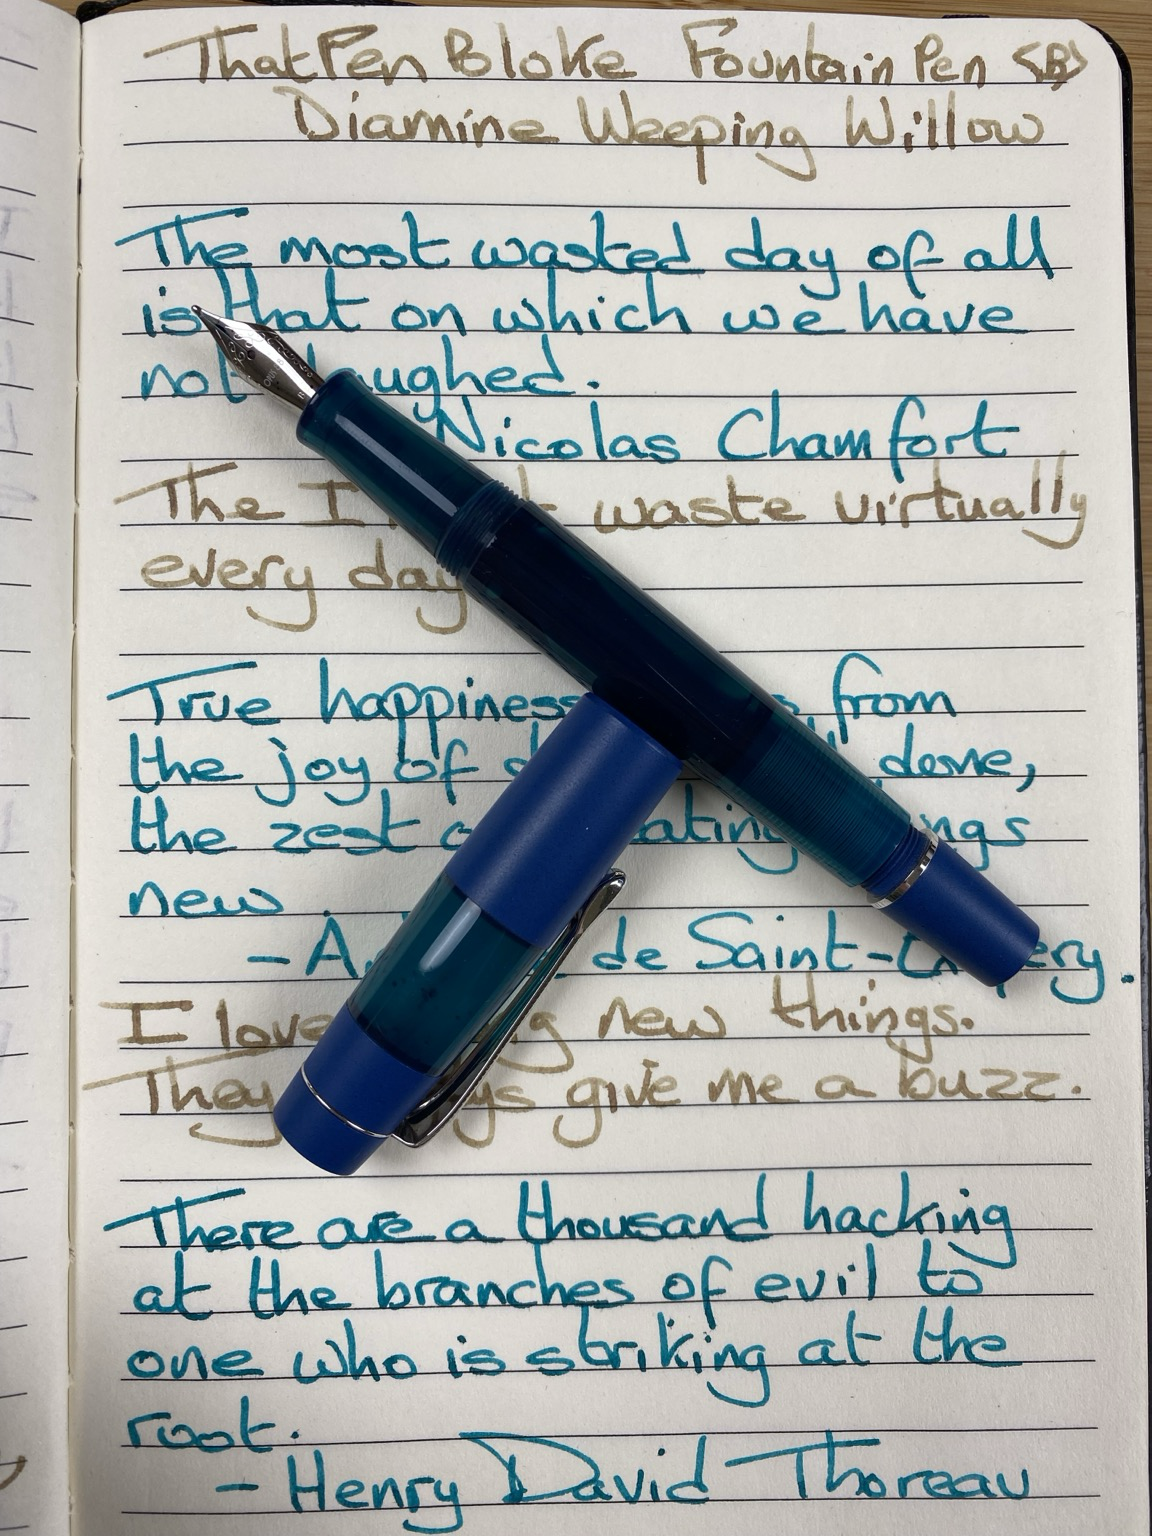 ThatPen Bloke Fountain Pen <B>
Diamine Weeping Willow
The most wasted day of all
is that on which we have
not laughed.
Nicolas Chamfort
The I waste virtually
every day
True happiness from
the joy of done,
the zest
new
- de Saint-
I love new things.
They give me a buzz.
There are a thousand hacking
at the branches of evil to
one who is striking at the
root.
- Henry David Thoreau